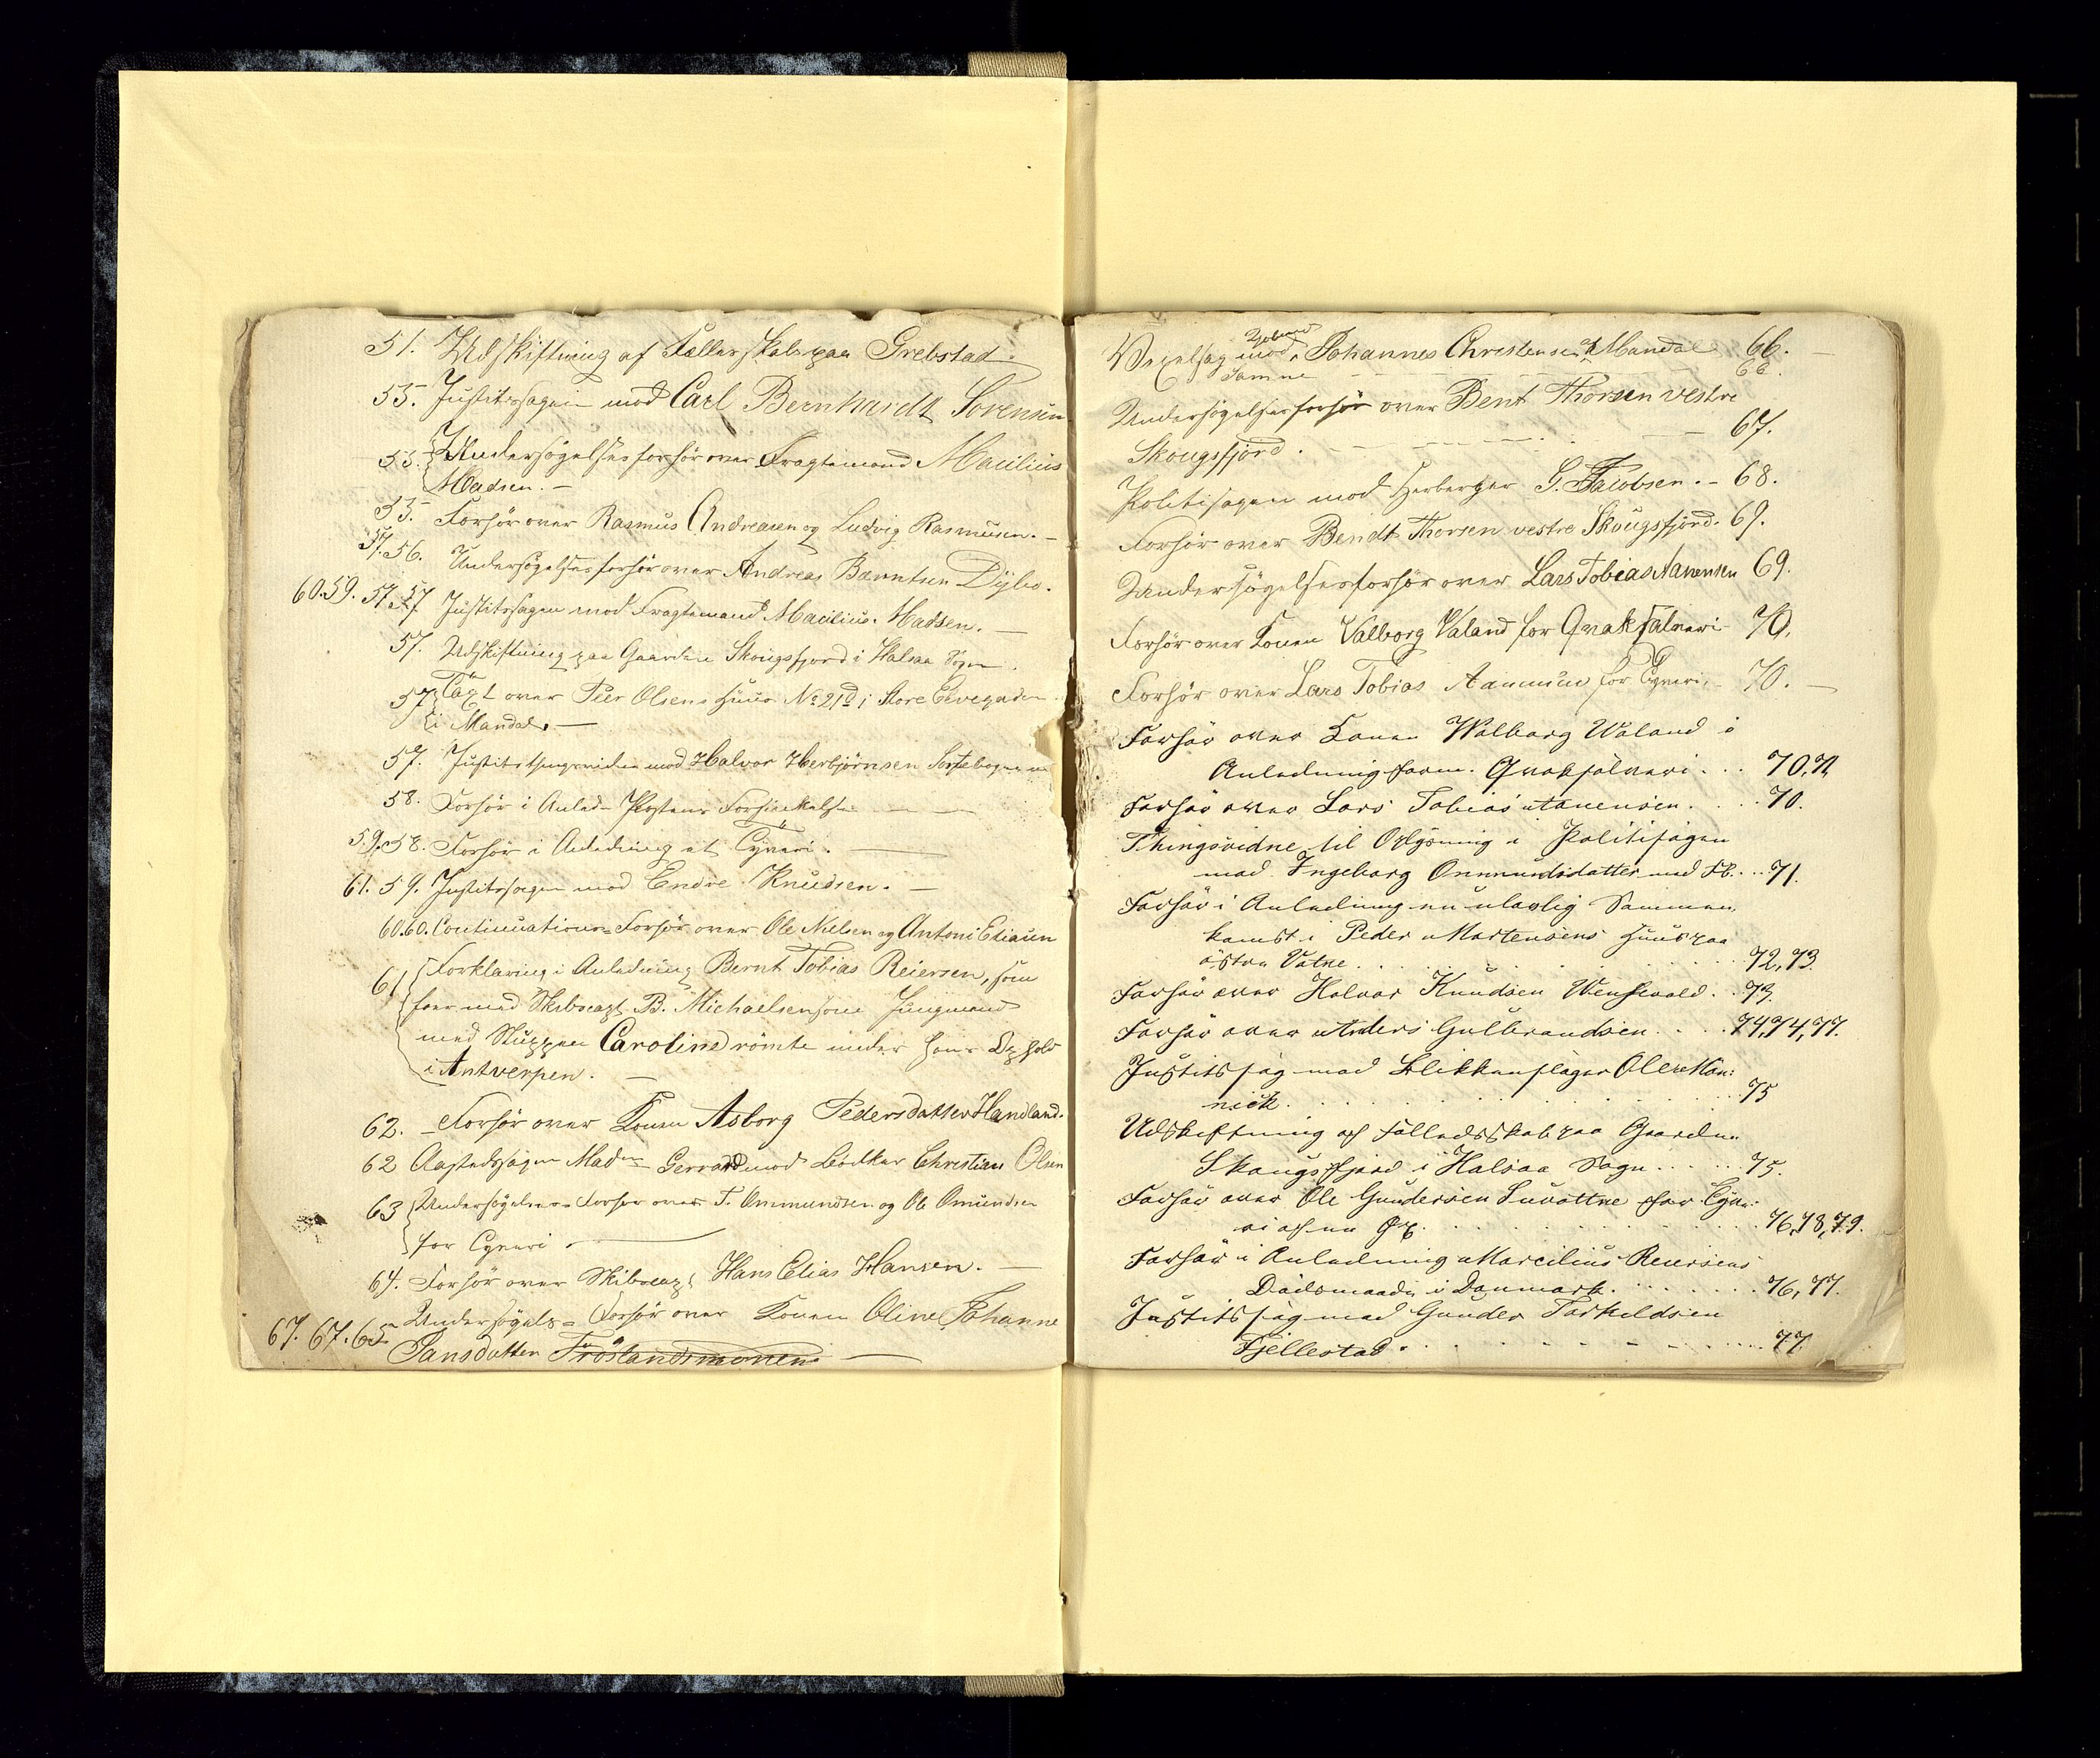 51. Udskiftning af Fællerskab paa Grebstad.
55. Justitssagen mod Carl Bernhardt Sörensen
55. Undersögelsesforhör over Fragtemand Macilius
Madsen. —
55. Forhör over Rasmus Andreasen og Ludvig Rasmusen. —
57. 56. Undersögelsesforhör over Andreas Bærntsen Dÿbo.
60. 59. 57. 57 Justitssagen mod Fragtemand Macilius Madsen. —
57. Udskiftning paa Gaarden Skougsfjord i Halsaa Sogn.
57 Taxt over Peer Olsens Huus No 21 i Store Elvegaden
i Mandal. —
57. Justitsthingsvidne mod Halvor Herbjörnsen
58. Forhör i Anled. Postens Forsinkelse — —
59. 58. Forhör i Anledning et Tÿveri. —
61. 59. Justitssagen mod Endre Knudsen. —
60. 60. Continuations-Forhör over Ole Nielsen og Antoni Eliasen
61 Forklaring i Anledning Bernt Tobias Reiersen, som
foer med Skibscapt. B. Michaelsen som Jungmand
med Skuppen Caroline römte under hans Ophold
i Antverpen. —
62. Forhör over Konen Asborg Pedersdatter Handland.
62 Aastedssagen Madm Gerrard mod Bödker Christian Olsen
63 Undersögelses-Forhör over T. Ommundsen og Ole Omundsen
for Tyveri. —
64. Forhör over Skibscapt Hans Elias Hansen. —
67. 67. 65 Undersögels-Forhör over Konen Oline Johanne
Jansdatter Fröslandsmonen —
Vexelsag mod Johannes Christensen af Mandal 66.
Samme — 66.
Undersögelsesforhör over Bent Thorsen vestre
Skougsfjord. — 67.
Politisagen mod Herberger G. Jacobsen. — 68.
Forhör over Bendt Thorsen vestre Skougsfjörd. 69.
Undersögelsesforhör over Lars Tobias Aanensen 69.
Forhör over Konen Valborg Valand for Qvaksalveri 70.
Forhör over Lars Tobias Aanensen for Tyveri. 70. —
Forhör over Konen Walborg Waland i
Anledning form. Qvaksalveri... 70, 71
Forhör over Lars Tobias Aanensen.... 70.
Thingsvidne til Oplysning i Politisagen
mod Ingeborg Ommundsdatter med Fl... 71.
Forhör i Anledning en ulovlig Sammen
komst i Peder Martensens Huus paa
östre Vatne.... 72, 73.
Forhör over Halvor Knudsen Wensvold.. 73.
Forhör over Anders Gulbrandsen.... 74, 74, 77.
Justitssag mod Blikkenslager Ole Mön:
nich.... 75
Udskiftning af Fælledsskab paa Gaarden
Skougsfjord i Halsaa Sogn..... 75.
Forhör over Ole Gundersen Suvattne for Tyve:
ri af en Oxe.... 76, 78, 79.
Forhör i Anledning Marcilius Reiersens
Dödsmaade i Danmark.... 76, 77.
Justitssag mod Gunder Tarkeldsen
Fjellestad.... 77